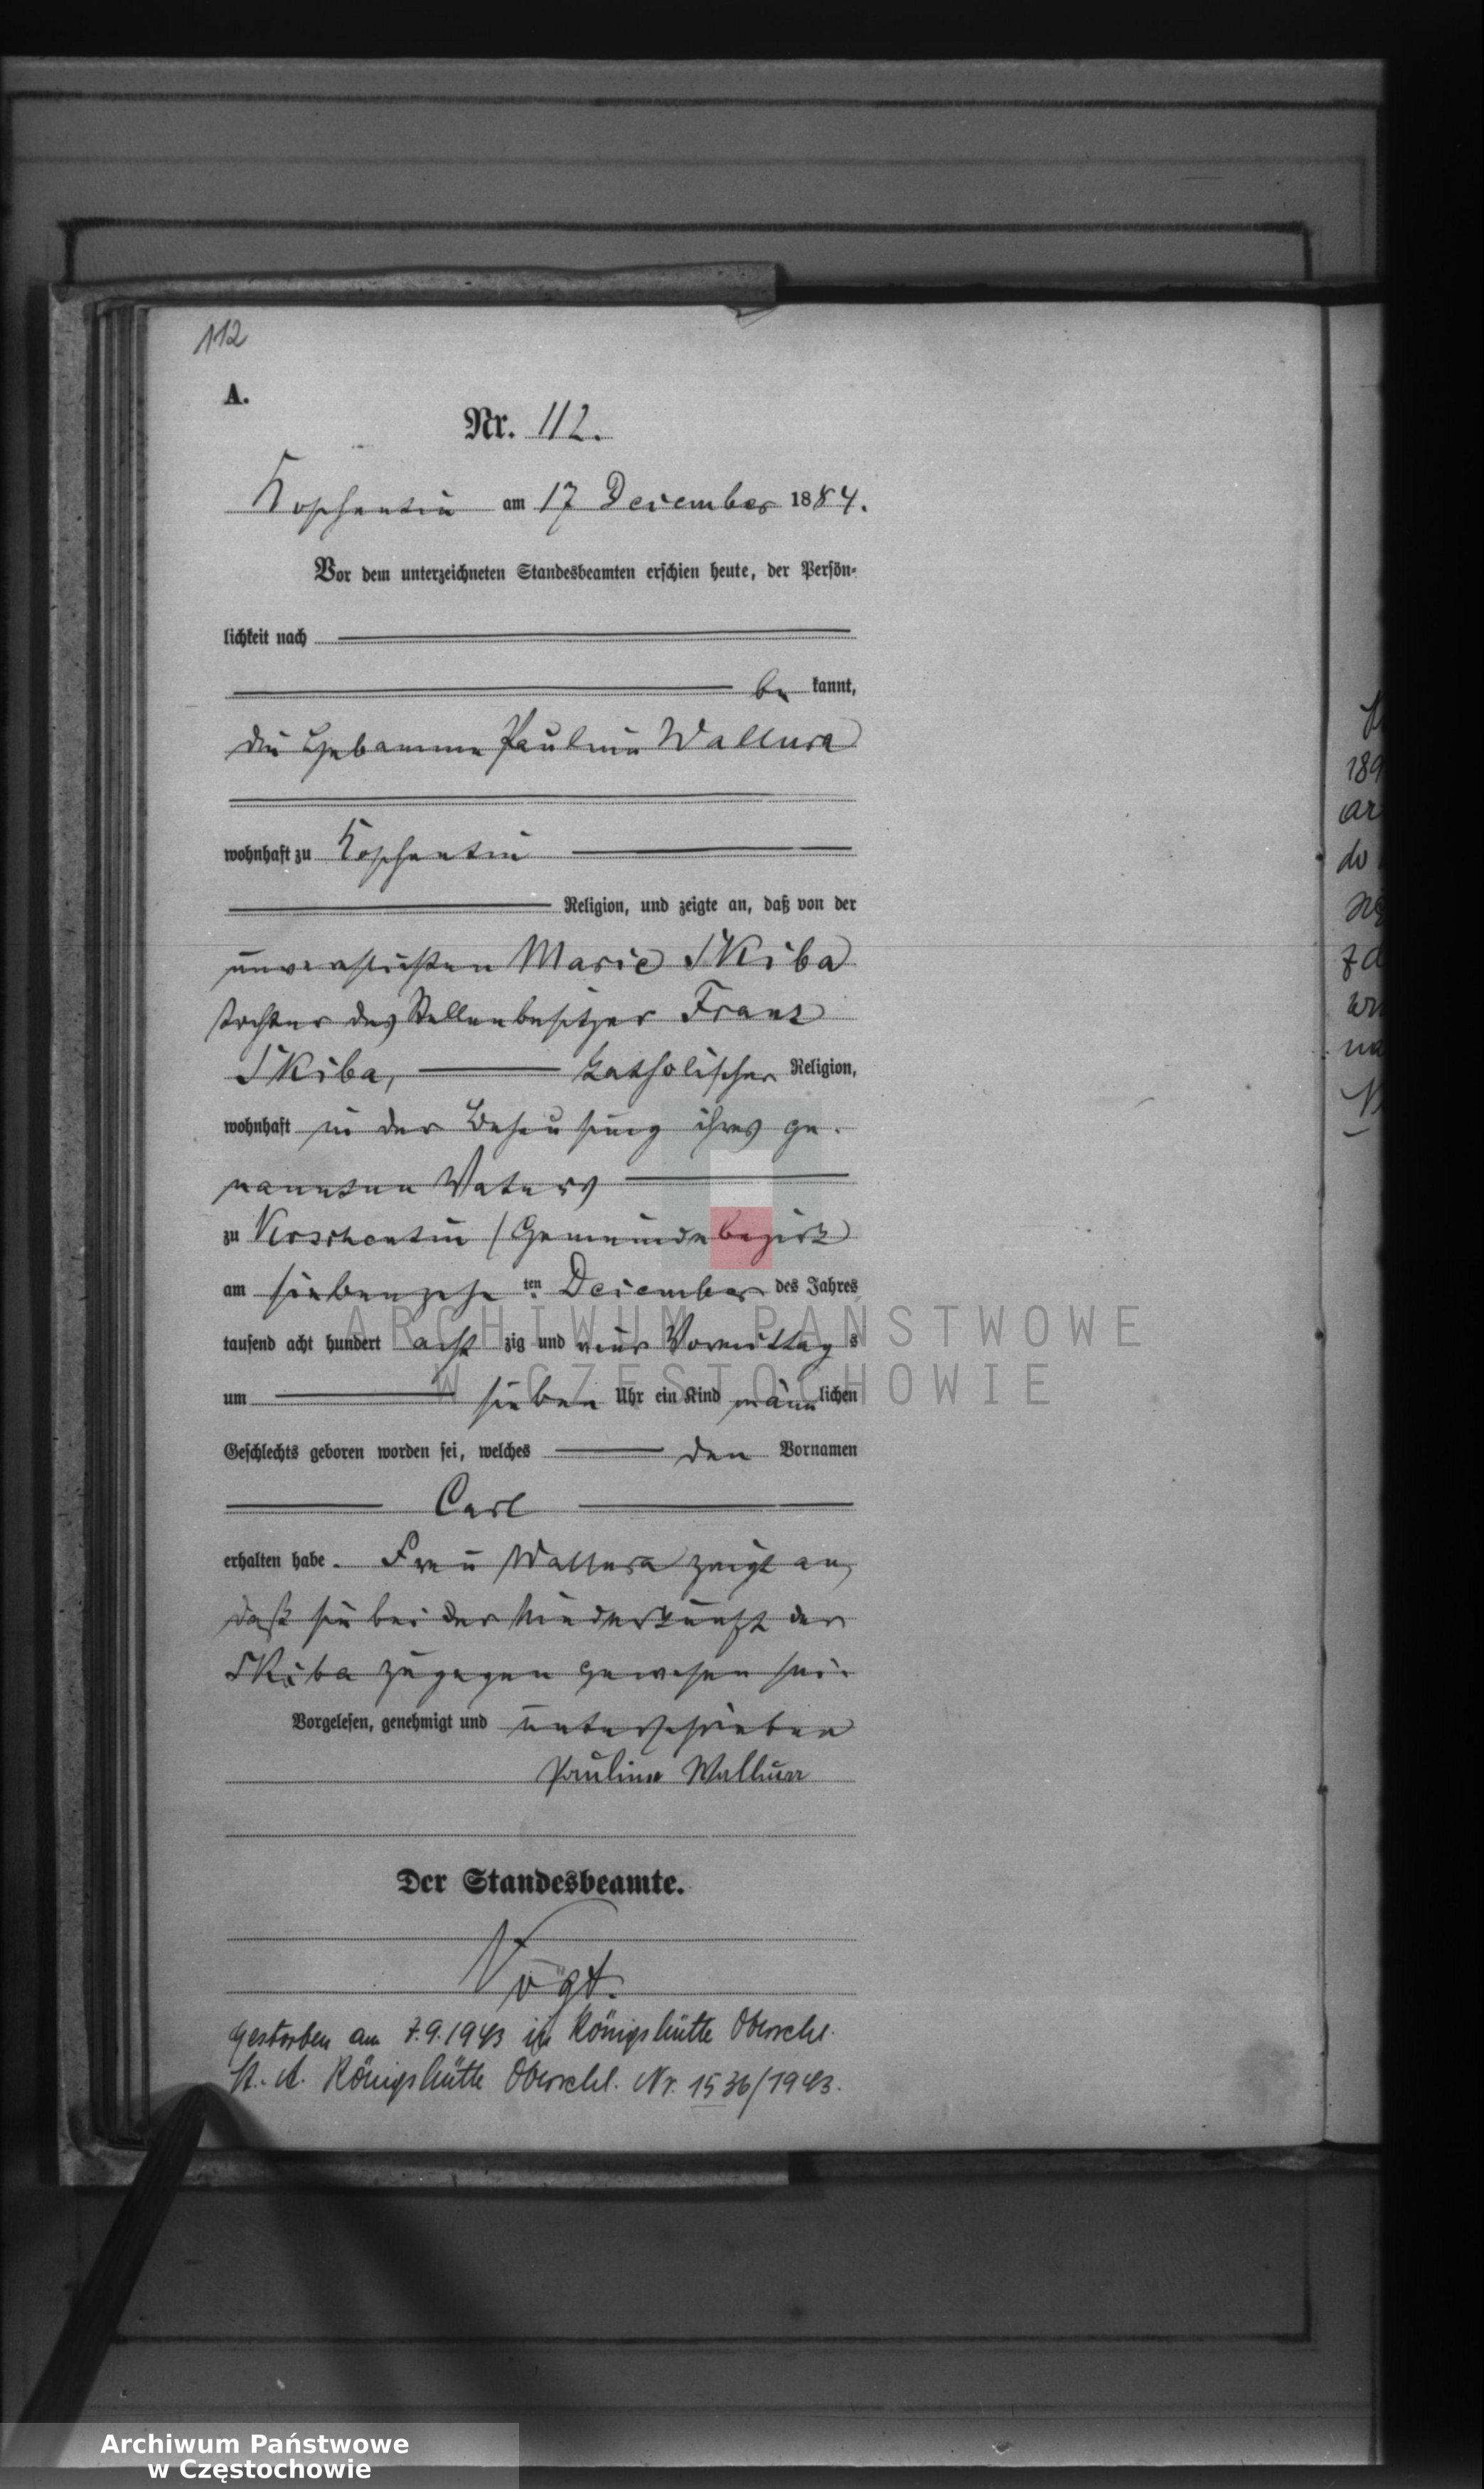 112
A.
Nr. 112.
Koschentin am 17 December 1884.
Vor dem unterzeichneten Standesbeamten erschien heute, der Persön-
lichkeit nach
be kannt,
die Hebamme Pauline Wallura
wohnhaft zu Koschentin
Religion, und zeigte an, daß von der
unverehelichten Marie Skiba
Tochter des Stellenbesitzer Franz
Skiba, katholischer Religion,
wohnhaft in der Behausung ihres ge-
nannten Vaters
zu Koschentin / Gemeindebezirk
am siebenzehn ten December des Jahres
tausend acht hundert acht zig und vier Vormittag s
um sieben Uhr ein Kind männ lichen
Geschlechts geboren worden sei, welches den Vornamen
Carl
erhalten habe. Frau Wallura zeigt an,
daß sie bei der Niederkunft der
Skiba zugegen gewesen sei.
Vorgelesen, genehmigt und unterschrieben
Pauline Wallura
Der Standesbeamte.
Vogt.
Gestorben am 7.9.1943 in Königshütte Oberschl.
St. A. Königshütte Oberschl. Nr. 1536/1943.
189
ar
do
za
na
ARCHIWUM PAŃSTWOWE
W CZĘSTOCHOWIE
Archiwum Państwowe
w Częstochowie